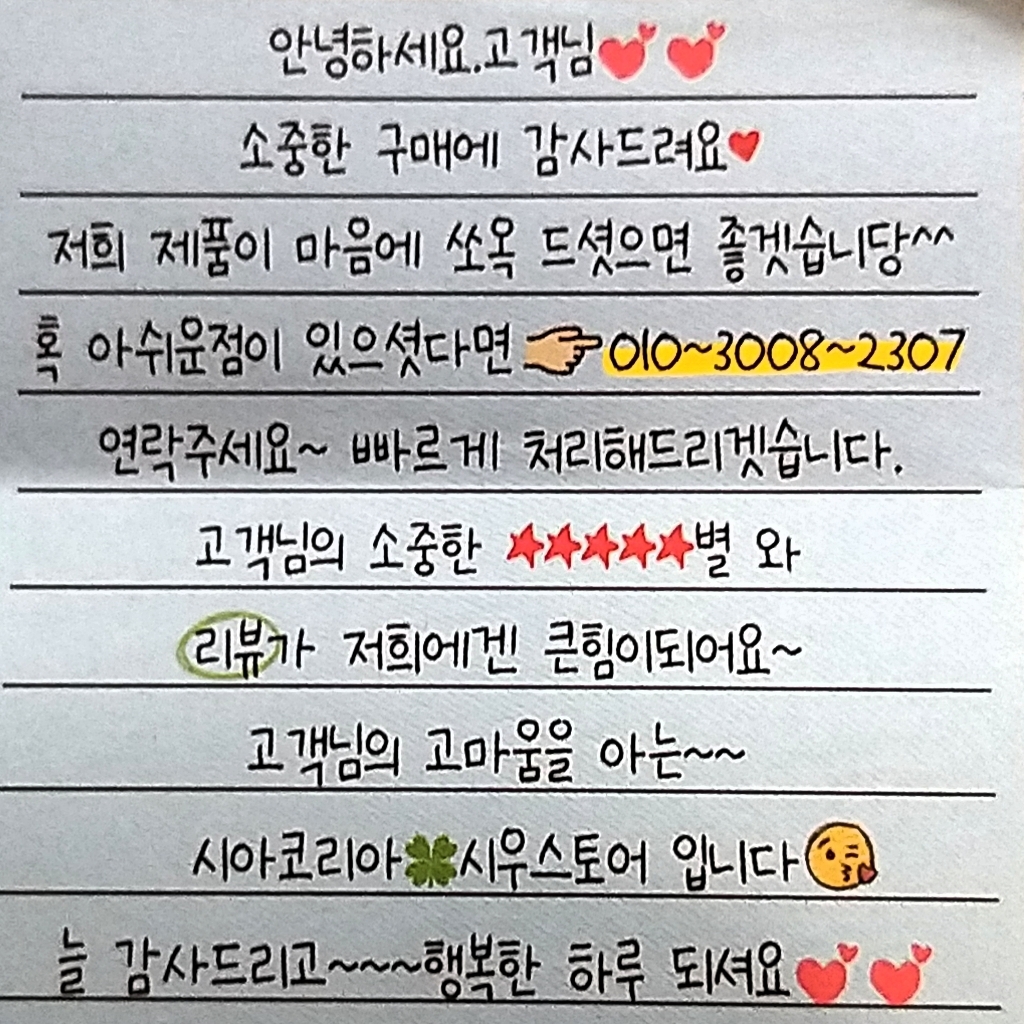 안녕하세요.고객님💕💕
소중한 구매에 감사드려요♥
저희 제품이 마음에 쏘옥 드셧으면 좋겟습니당^^
혹 아쉬운점이 있으셧다면 👉010~3008~2307
연락주세요~ 빠르게 처리해드리겟습니다.
고객님의 소중한 ★★★★★별 와
리뷰가 저희에겐 큰힘이되어요~
고객님의 고마움을 아는~~
시아코리아🍀시우스토어 입니다😘
늘 감사드리고~~~~행복한 하루 되셔요💕💕